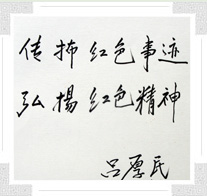 传播红色事迹
弘揚红色精神
吕厚民